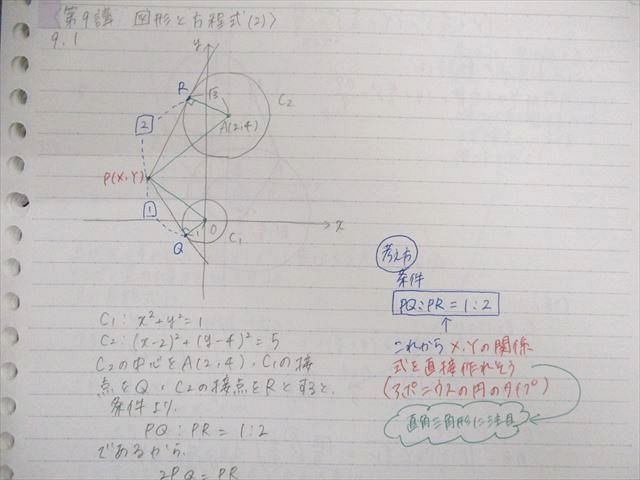 〈第9講 図形と方程式(2)〉
9.1
y
R
√5
C2
A(2,4)
2
P(X,Y)
1
x
1
O
C1
Q
考え方
条件
PQ:PR=1:2
これからX,Yの関係
式を直接作れそう
(アポロニウスの円のタイプ)
直角三角形に注目
C1: x²+y²=1
C2: (x-2)²+(y-4)²=5
C2の中心をA(2,4)、C1の接
点をQ、C2の接点をRとすると、
条件より、
PQ:PR=1:2
であるから、
2PQ=PR